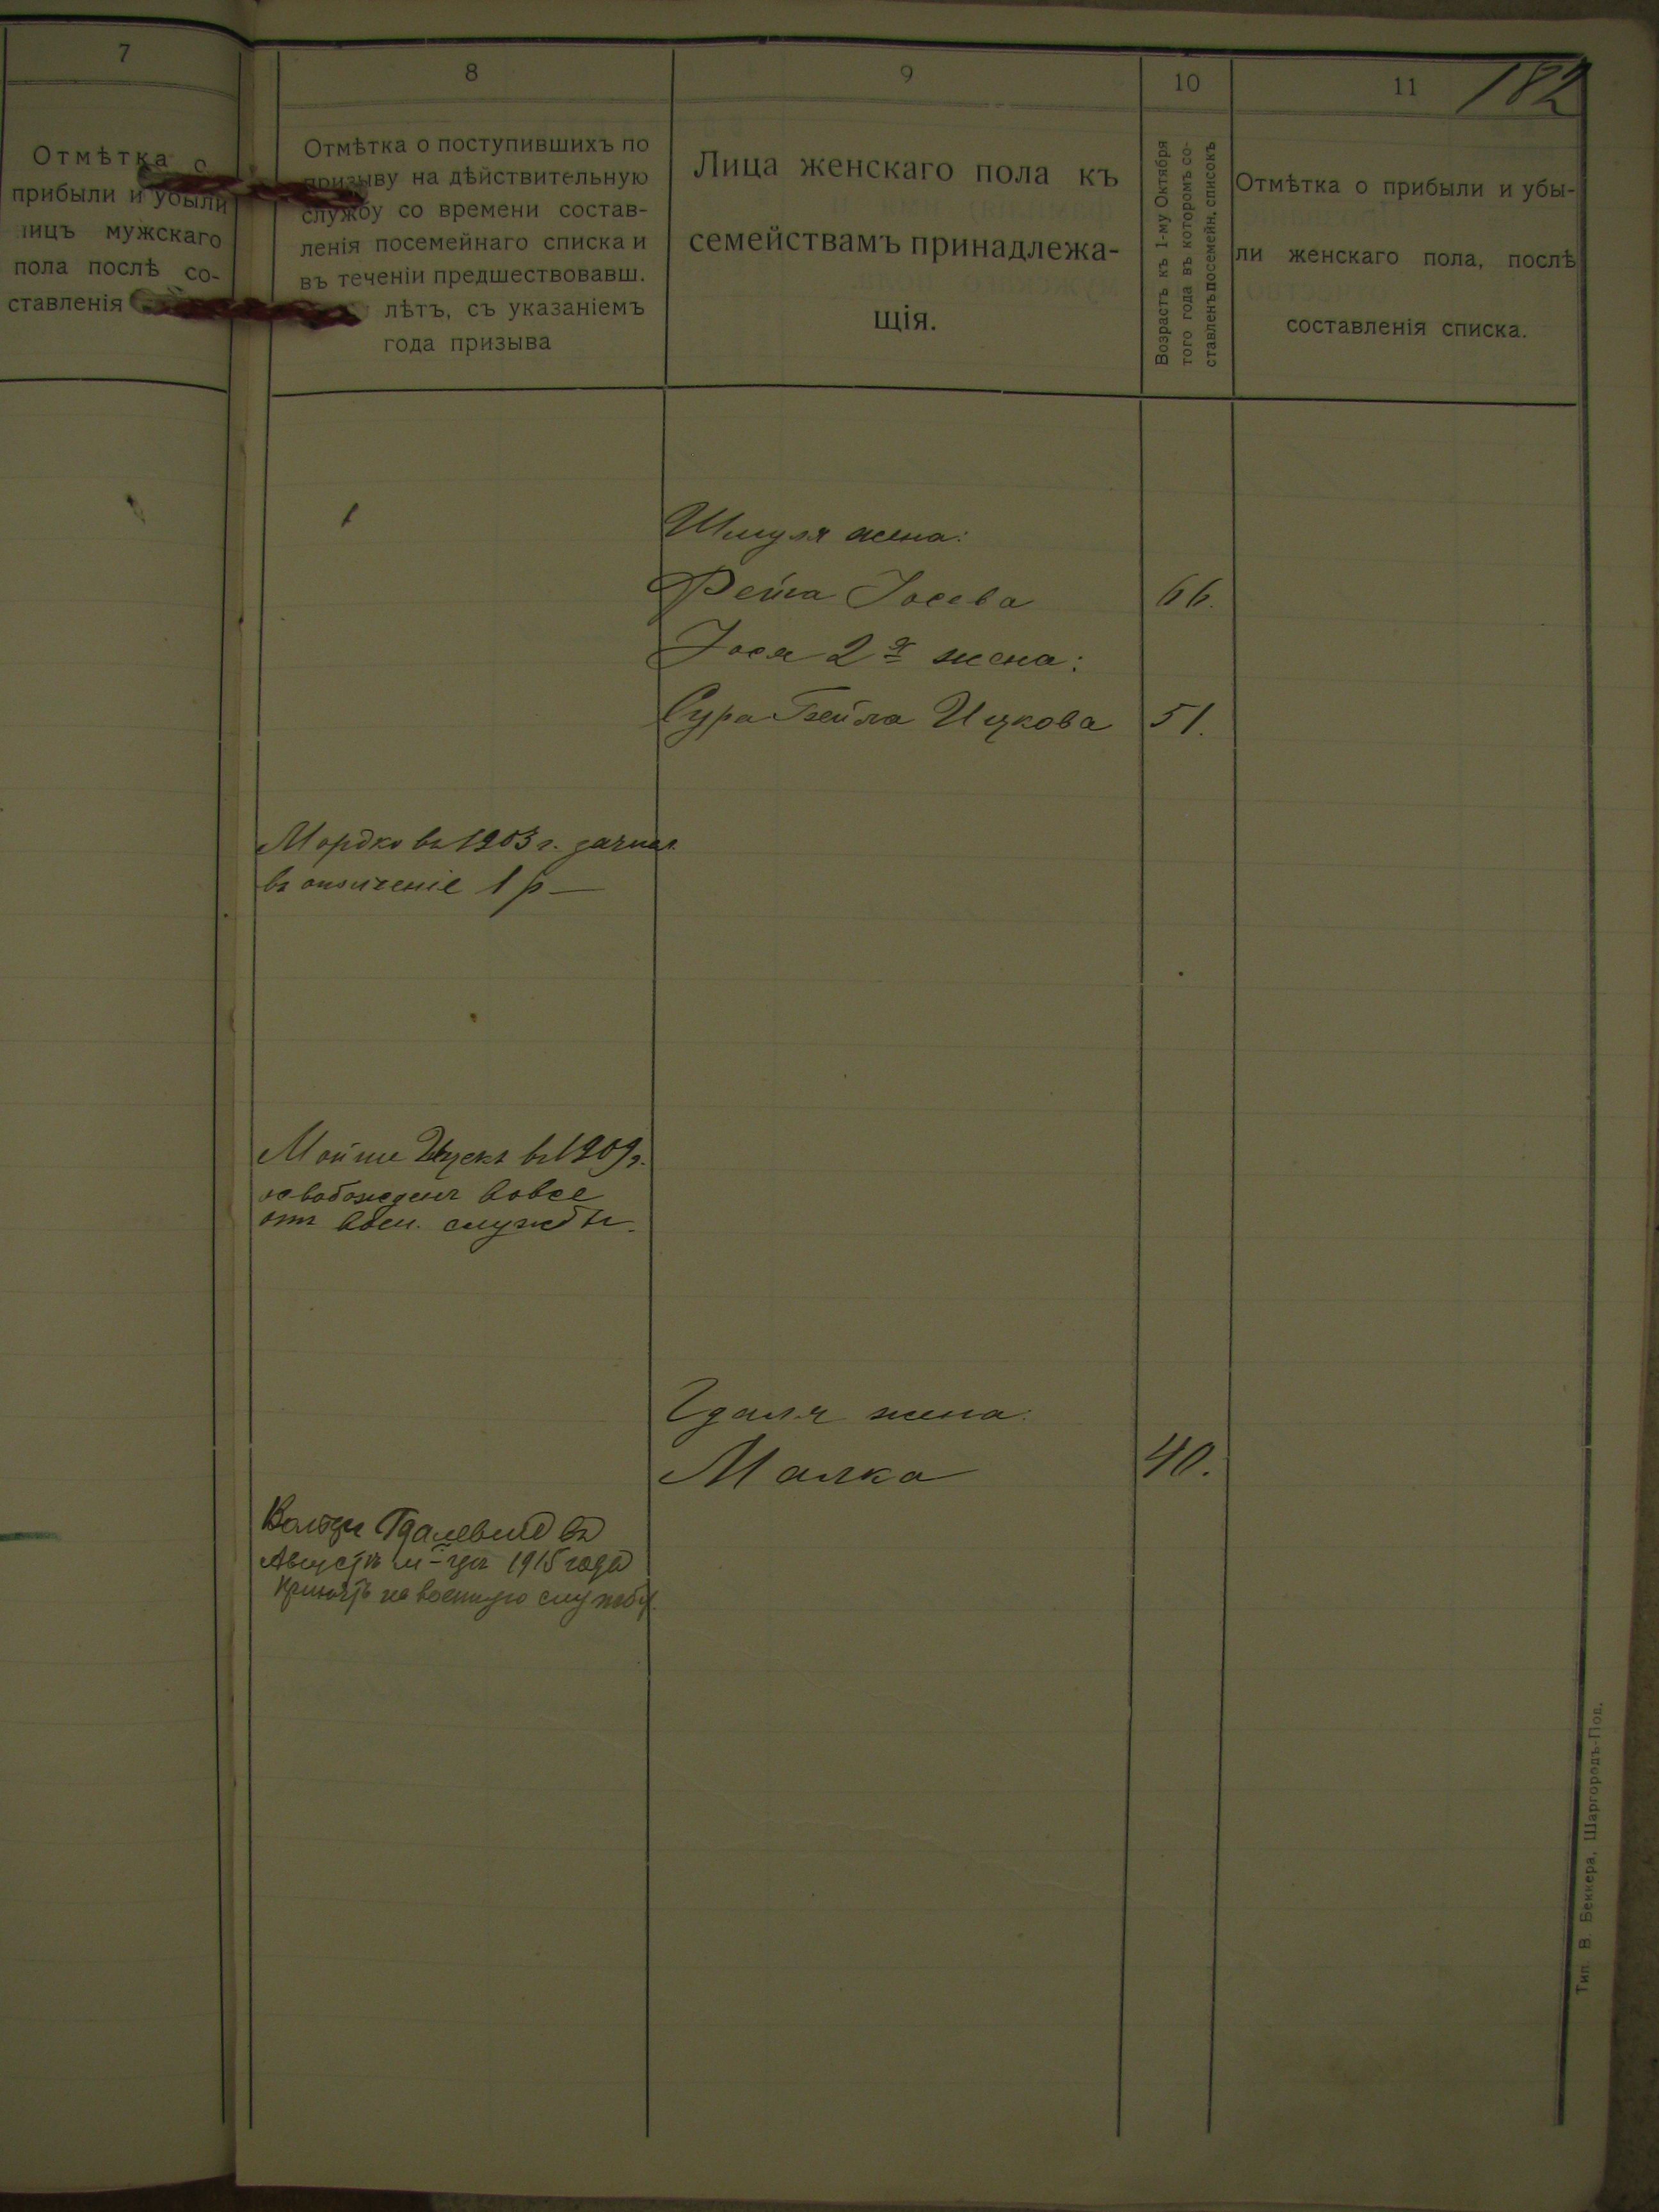 7
Отмѣтка о
прибыли и убыли
лицъ мужскаго
пола послѣ со-
ставленія
8
Отмѣтка о поступившихъ по
призыву на дѣйствительную
службу со времени состав-
ленія посемейнаго списка и
въ теченіи предшествовавш.
лѣтъ, съ указаніемъ
года призыва
9
Лица женскаго пола къ
семействамъ принадлежа-
щія.
10
Возрастъ къ 1-му Октября
того года въ которомъ со-
ставленъ посемейн. списокъ
11
182
Отмѣтка о прибыли и убы-
ли женскаго пола, послѣ
составленія списка.
Шмуля жена:
Іосева 66.
Іося 2я жена:
Сура Бейла Ицкова 51.
Мордко въ 1903 г. зачисл.
въ ополченіе 1 р
Мойше въ 1909 г.
освобожденъ вовсе
отъ воен. службы.
Гдаля жена:
Малка 40.
Гдалевъ въ
Августѣ м-цѣ 1915 года
принятъ на военную службу.
Тип. В. Беккера, Шаргородъ-Под.